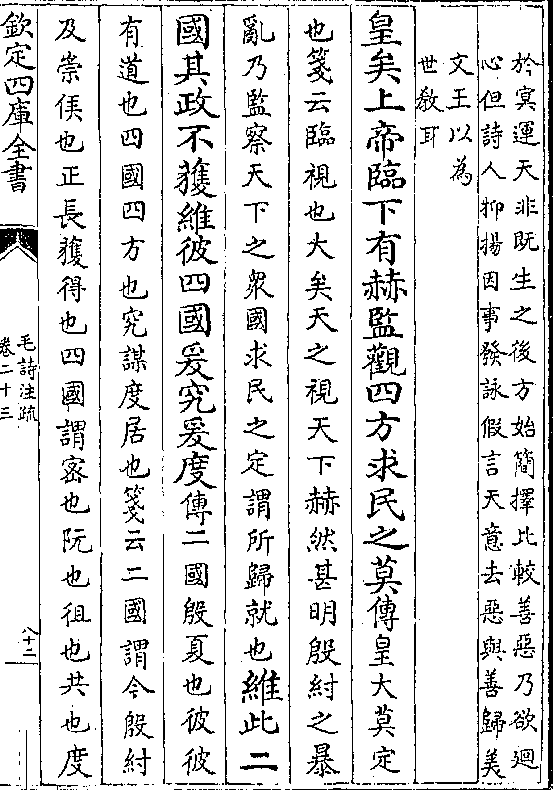 於冥運天非既生之後方始簡擇比較善惡乃欲迴
心但詩人抑揚因事發詠假言天意去惡與善歸美
文王以為
世教耳
皇矣上帝臨下有赫監觀四方求民之莫傳皇大莫定
也箋云臨視也大矣天之視天下赫然甚明殷紂之暴
亂乃監察天下之衆國求民之定謂所歸就也維此二
國其政不獲維彼四國爰究爰度傳二國殷夏也彼彼
有道也四國四方也究謀度居也箋云二國謂今殷紂
及崇侯也正長獲得也四國謂密也阮也徂也共也度
欽定四庫全書
毛詩注疏
卷二十三
八十二